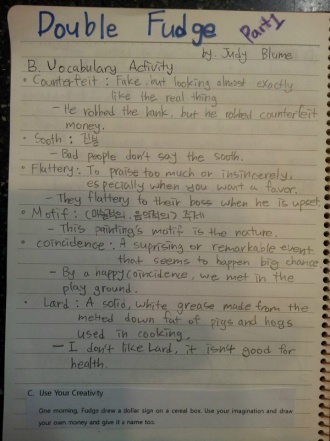 Double Fudge Part 1
by. Judy Blume
B. Vocabulary Activity
• Counterfeit : Fake, but looking almost exactly
like the real thing
- He robbed the bank, but he robbed counterfeit
money.
• Sooth : 진실
- Bad people don't say the sooth.
• Flattery : To praise too much or insincerely,
especially when you want a favor.
- They flattery to their boss when he is upset.
• Motif : 주제
- This painting's motif is the nature.
• coincidence : A suprising or remarkable event
that seems to happen big chance
- By a happy coincidence, we met in the
play ground.
• Lard : A solid, white grease made from the
melted down fat of pigs and hogs
used in cooking.
- I don't like Land, it isn't good for
health.
C. Use Your Creativity
One morning, Fudge drew a dollar sign on a cereal box. Use your imagination and draw
your own money and give it a name too.